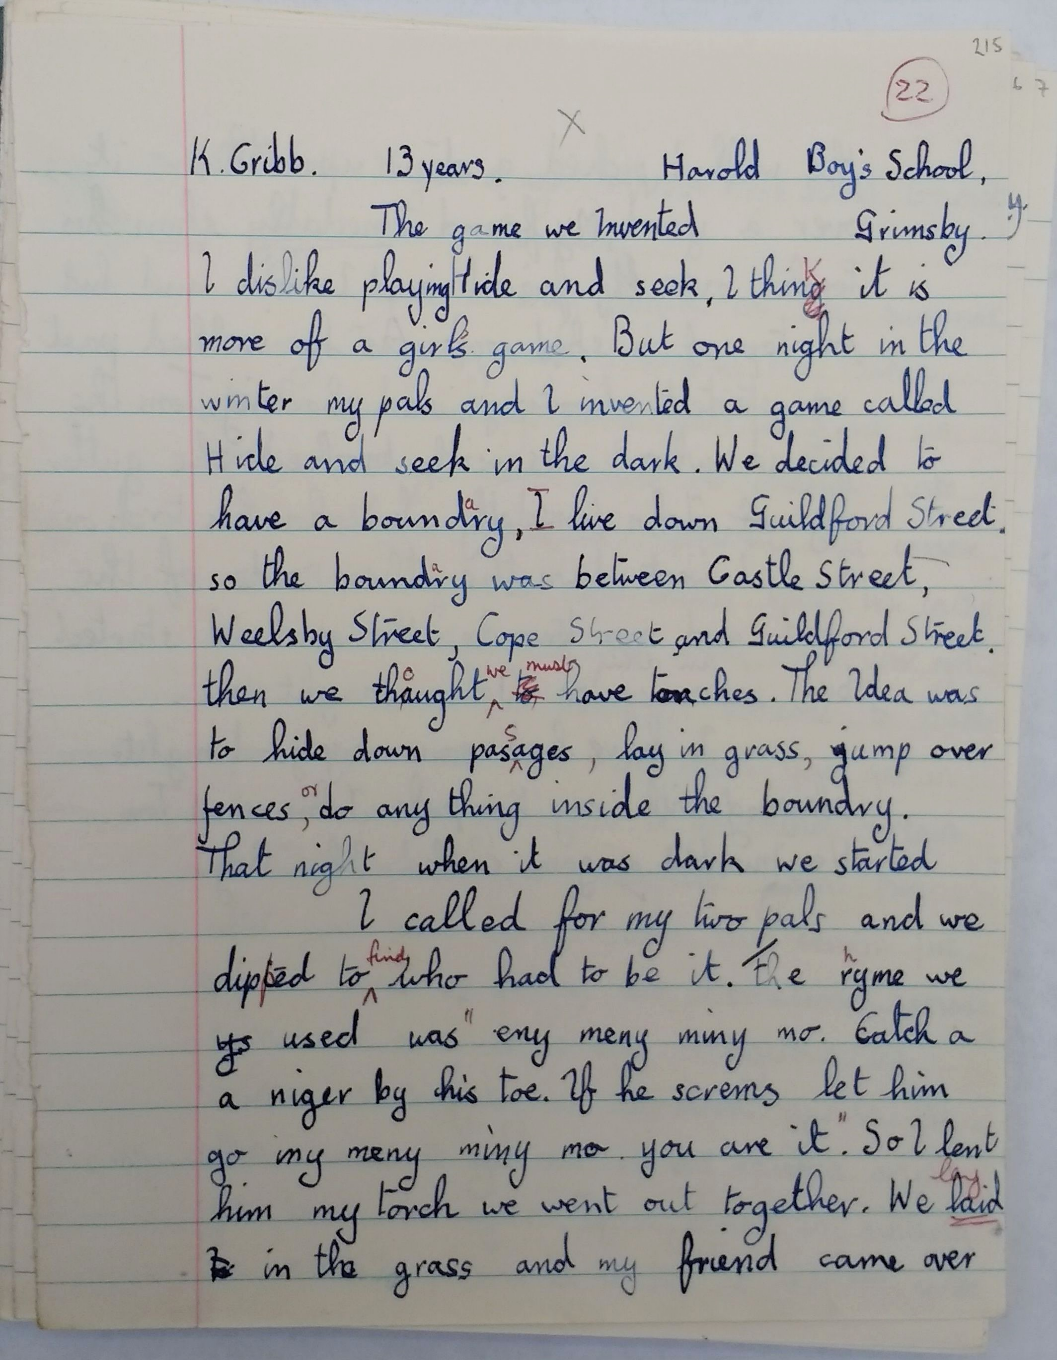 215
22
X
K. Gribb. 13 years. Harold Boy's School,
The game we Invented Grimsby.
I dislike playing Hide and seek, I think it is
more off a girls game. But one night in the
winter my pals and I invented a game called
Hide and seek in the dark. We decided to
have a boundary, I live down Guildford Street.
so the boundary was between Castle Street,
Weelsby Street, Cope Street and Guildford Street.
then we thought we must have torches. The Idea was
to hide down passages, lay in grass, jump over
fences, or do any thing inside the boundry.
That night when it was dark we started
I called for my two pals and we
dipped to find who had to be it. The rhyme we
used was " eny meny miny mo. Catch a
a niger by his toe. If he screms let him
go iny meny miny mo you are it". So I lent
him my torch we went out together. We laid lay
in the grass and my friend came over